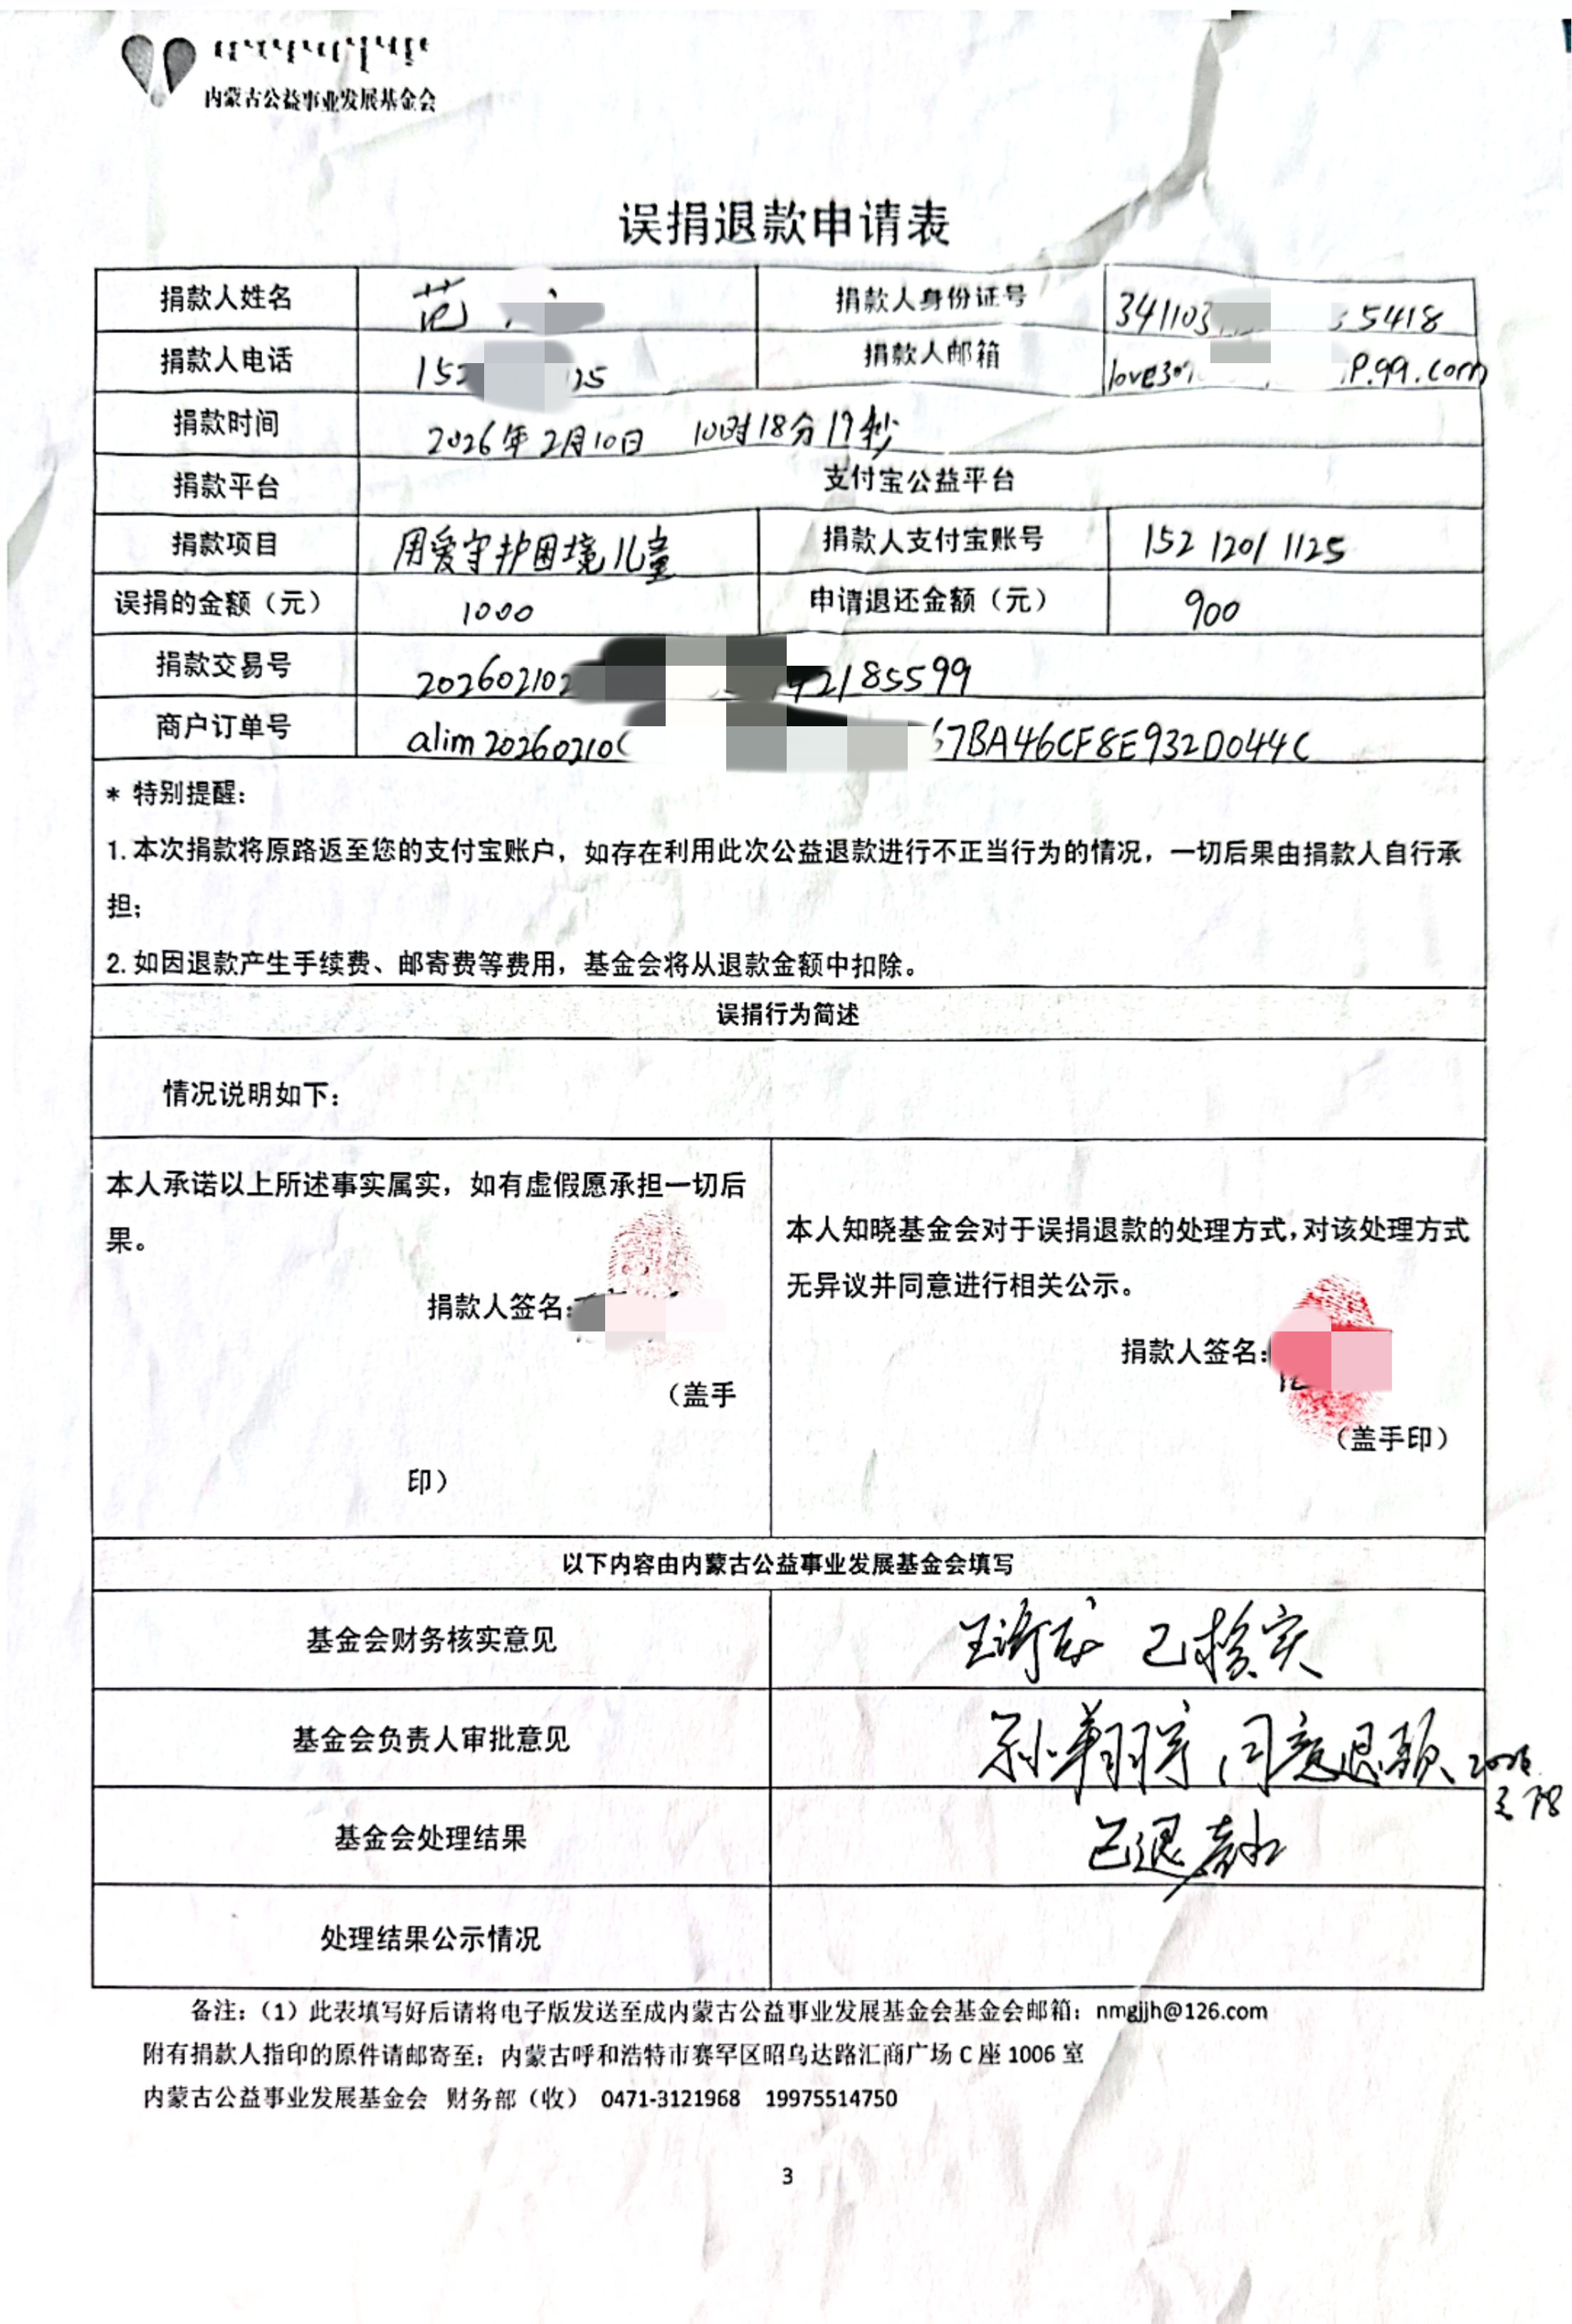 内蒙古公益事业发展基金会
误捐退款申请表
捐款人姓名 范 捐款人身份证号 341103 5418
捐款人电话 152 25 捐款人邮箱 love30 P.qq.com
捐款时间 2026年2月10日 10时18分19秒
捐款平台 支付宝公益平台
捐款项目 用爱守护困境儿童 捐款人支付宝账号 152 1201 1125
误捐的金额（元） 1000 申请退还金额（元） 900
捐款交易号 202602102 2185599
商户订单号 alim20260210 7BA46CF8E932D044C
* 特别提醒：
1. 本次捐款将原路返至您的支付宝账户，如存在利用此次公益退款进行不正当行为的情况，一切后果由捐款人自行承
担；
2. 如因退款产生手续费、邮寄费等费用，基金会将从退款金额中扣除。
误捐行为简述
情况说明如下：
本人承诺以上所述事实属实，如有虚假愿承担一切后
果。
捐款人签名：
（盖手
印）
本人知晓基金会对于误捐退款的处理方式，对该处理方式
无异议并同意进行相关公示。
捐款人签名：
（盖手印）
以下内容由内蒙古公益事业发展基金会填写
基金会财务核实意见 王 已核实
基金会负责人审批意见 孙翔宇 同意退款 2026
基金会处理结果 已退
处理结果公示情况
备注：（1）此表填写好后请将电子版发送至成内蒙古公益事业发展基金会基金会邮箱：nmgjjh@126.com
附有捐款人指印的原件请邮寄至：内蒙古呼和浩特市赛罕区昭乌达路汇商广场 C 座 1006 室
内蒙古公益事业发展基金会 财务部（收） 0471-3121968 19975514750
3